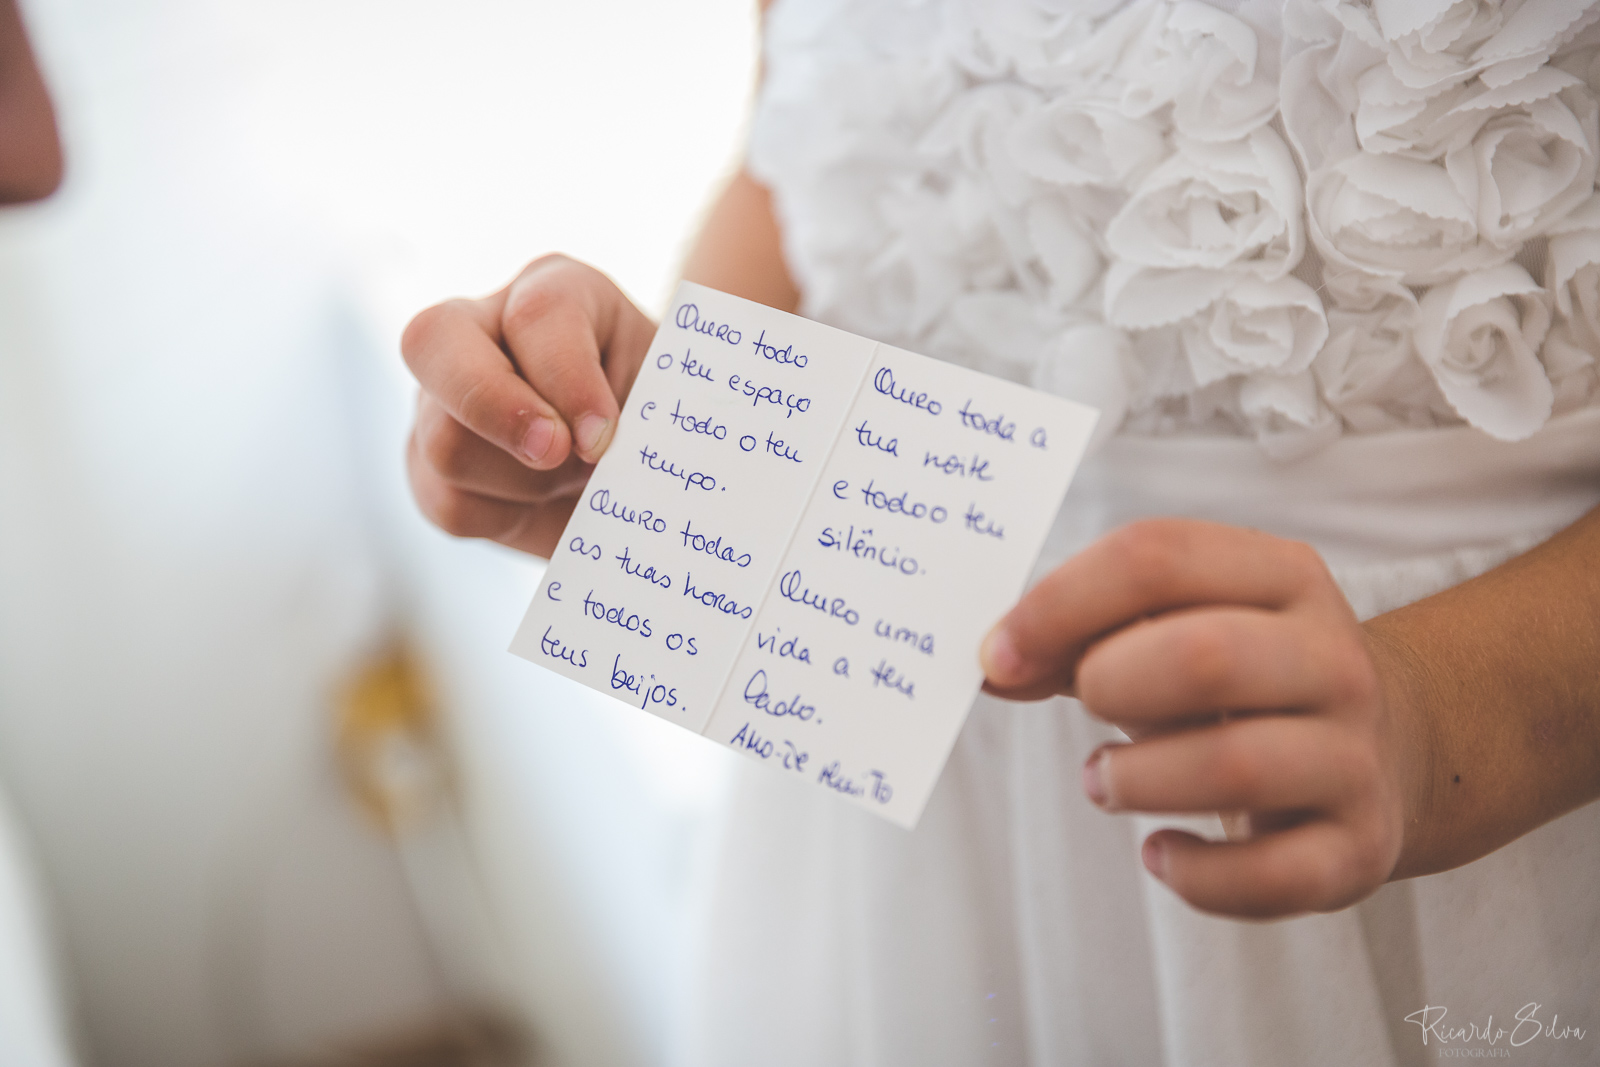 Quero todo
o teu espaço
e todo o teu
tempo.
Quero todas
as tuas horas
e todos os
teus beijos.
Quero toda a
tua noite
e todo o teu
silêncio.
Quero uma
vida a teu
lado.
Amo-Te Muito
Ricardo Silva
FOTOGRAFIA